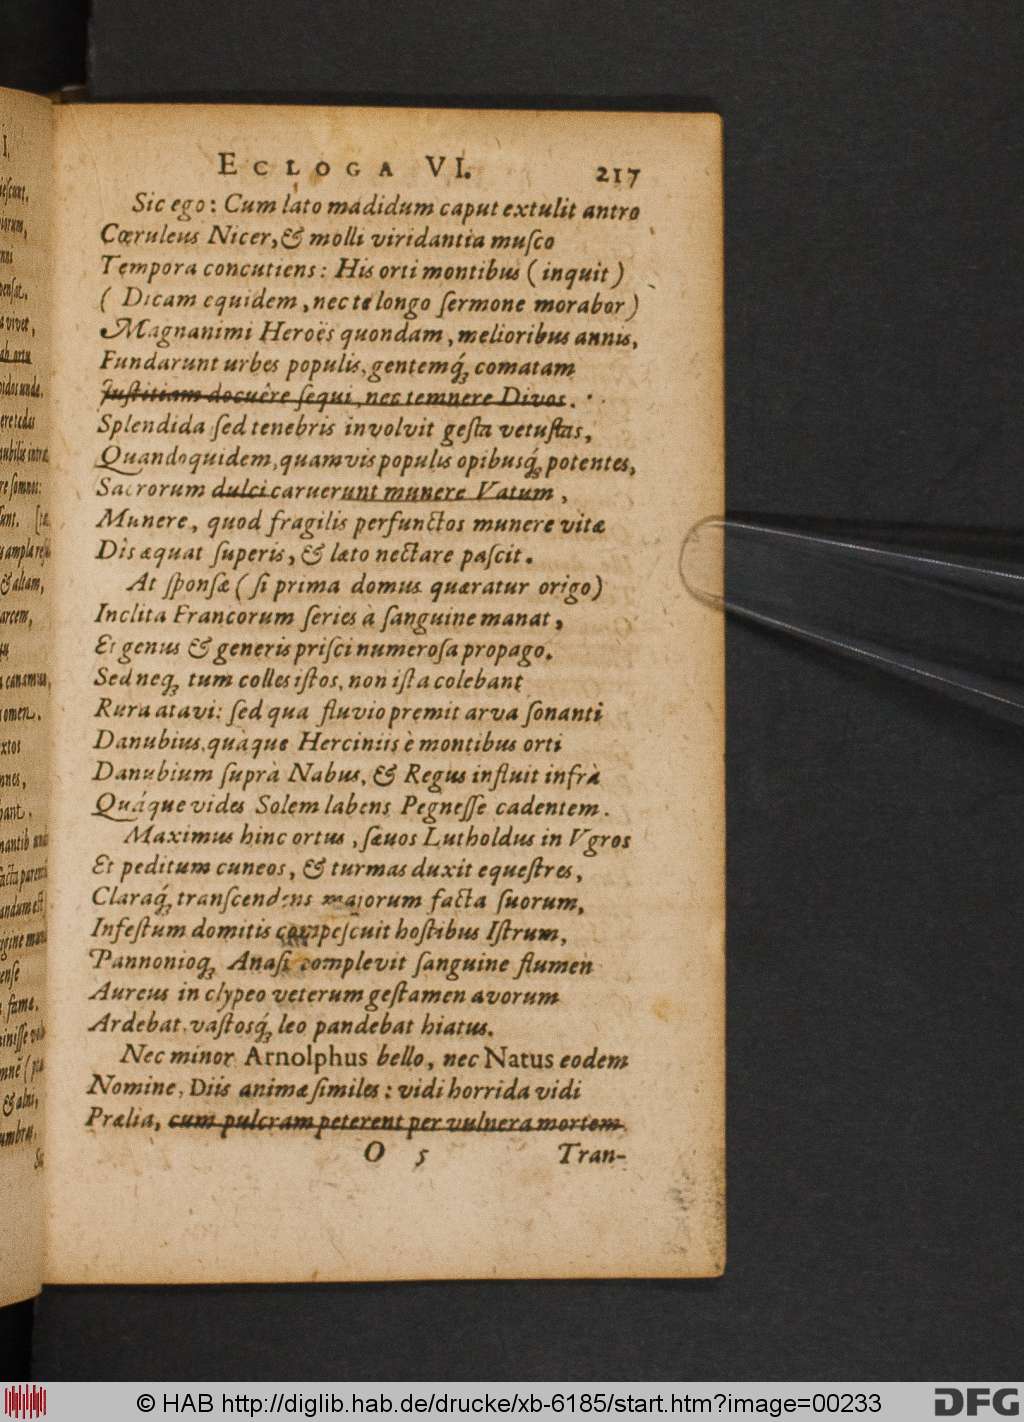 ECLOGA VI. 217
Sic ego: Cum lato madidum caput extulit antro
Cœruleus Nicer, & molli viridantia muſco
Tempora concutiens: His orti montibus (inquit)
(Dicam equidem, nec te longo ſermone morabor)
Magnanimi Heroës quondam, melioribus annis,
Fundarunt urbes populis, gentemq́ʒ comatam
Juſtitiam docuêre ſequi, nec temnere Divos.
Splendida ſed tenebris involvit geſta vetuſtas,
Quandoquidem, quamvis populis opibusq́ʒ potentes,
Sacrorum dulci caruerunt munere Vatum,
Munere, quod fragilis perfunctos munere vitæ
Dîs æquat ſuperis, & læto nectare paſcit.
At ſponſæ (ſi prima domus quæratur origo)
Inclita Francorum ſeries à ſanguine manat,
Et genus & generis priſci numeroſa propago.
Sed neqʒ tum colles iſtos, non iſta colebant
Rura atavi: ſed qua fluvio premit arva ſonanti
Danubius, quàque Herciniis è montibus orti
Danubium ſuprà Nabus, & Regus influit infrà
Quáque vides Solem labens Pegneſſe cadentem.
Maximus hinc ortus, ſævos Lutholdus in Vgros
Et peditum cuneos, & turmas duxit equeſtres,
Claraq́ʒ tranſcendens majorum facta ſuorum,
Infeſtum domitis compeſcuit hoſtibus Iſtrum,
Pannonioqʒ Anaſi complevit ſanguine flumen
Aureus in clypeo veterum geſtamen avorum
Ardebat, vaſtosq́ʒ leo pandebat hiatus.
Nec minor Arnolphus bello, nec Natus eodem
Nomine, Diis animæ ſimiles: vidi horrida vidi
Prælia, cum pulcram peterent per vulnera mortem
O 5 Tran-
© HAB http://diglib.hab.de/drucke/xb-6185/start.htm?image=00233 DFG